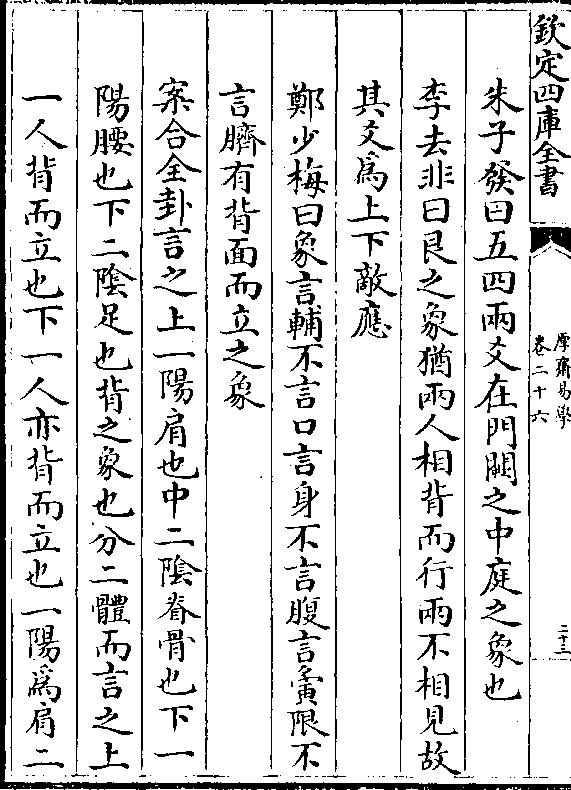 欽定四庫全書
厚齋易學
卷二十六
二十三
朱子發曰五四兩爻在門闕之中庭之象也
李去非曰艮之象猶兩人相背而行兩不相見故
其爻為上下敵應
鄭少梅曰象言輔不言口言身不言腹言夤限不
言臍有背面而立之象
案合全卦言之上一陽肩也中二陰脊骨也下一
陽腰也下二陰足也背之象也分二體而言之上
一人背而立也下一人亦背而立也一陽為肩二